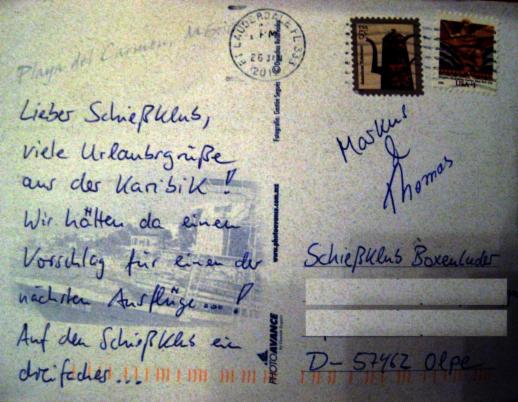 Playa del Carmen,
FT LAUDERDALE FL 333
PM
Lieber Schießklub,
viele Urlaubsgrüße
aus der Karibik!
Wir hätten da einen
Vorschlag für einen der
nächsten Ausflüge...!
Auf den Schießklub ein
dreifaches...
www.photoavance.com.mx
PHOTOAVANCE
Markus
&
Thomas
Schießklub Boxenluder
D-57462 Olpe